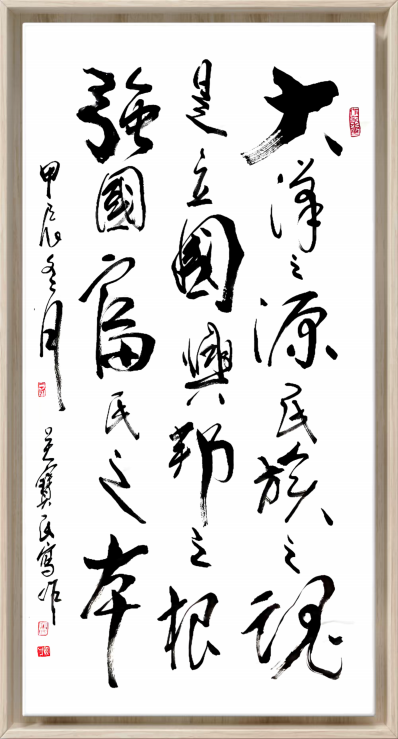 大漢之源民族之魂
是立國興邦之根
強國富民之本
甲辰冬月
吴寶民寫作